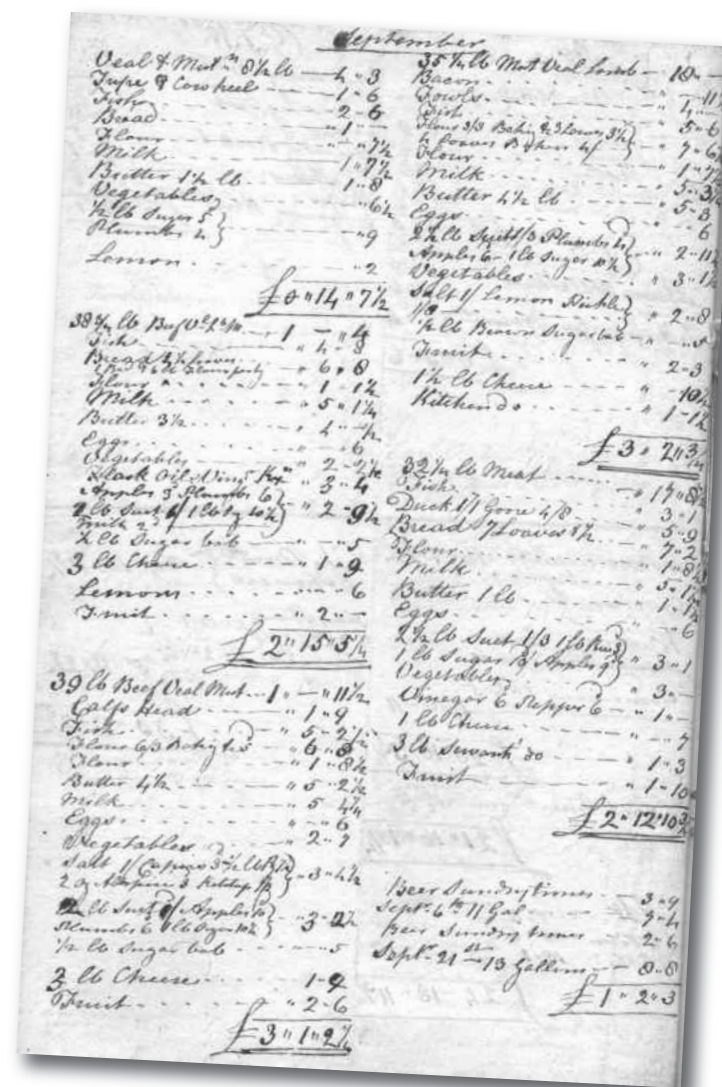 September
Veal & Mutn 8½ lb — 4 " 3
Tripe & Cowheel — 1 - 6
Fish — 2 - 6
Bread — " 1 " —
Flour — " - 7½
Milk — 1 " 7½
Butter 1½ lb — 1 " 8
Vegetables — " 6½
½ lb Sugar 5 }
Plumbs 4 } " 9
Lemon — " 2
£ 0 " 14 " 7½
38¾ lb Beef — 1 — " 4
Fish — " 4 - 8
Bread — " 6 " 8
Flour — " 1 - 1½
Milk — " 5 " 1¼
Butter 3½ — " 4 — ½
Eggs — " 6
Vegetables — " 2 - 2½
Flask Oil — " 3 - 4
Apples 3 Plumbs 6 }
2 lb Suet 1/ 1 lb 10½ } " 2 - 9½
½ lb Sugar — " 5
3 lb Cheese — " 1 " 9
Lemons — " 6
Fruit — " 2 " —
£ 2 " 15 " 5¼
39 lb Beef Veal Mut — 1 " — " 11½
Calfs Head — " 1 " 9
Fish — " 5 - 2½
Flour 6/3 Baking — " 6 " 8
Flour — " 1 " 8½
Butter 4½ — " 5 " 2½
Milk — " 5 4¼
Eggs — " - " 6
Vegetables — " 2 " 7
Salt 1/ Capers
2 oz Ketchup } " 3 " 4½
2 lb Suet Apples
Plumbs 6 1 lb Sugar 10½ } " 3 - 2½
½ lb Sugar — " 5
3 lb Cheese — 1 - 9
Fruit — " 2 - 6
£ 3 " 1 " 2½
35¼ lb Mut Veal Lamb — 18 " —
Bacon — " - 11½
Fowls — " 4 " —
Fish — " 5 " 6
Flour 3/3 Baking 2 3 Loaves 3½ }
½ Loaves Bakers } " 7 " 6
Flour — " 1 " 7½
Milk — " 5 " 3½
Butter 4½ lb — " 5 - 3
Eggs — " 6
2½ lb Suet 1/3 Plumbs }
Apples 6 - 1 lb Sugar 10½ } " 2 " 11½
Vegetables — " 3 " 1½
Salt 1/ Lemon Pickle
1/8 } " 2 " 8
½ lb Brown Sugar — " 5
Fruit — " 2 - 3
1½ lb Cheese — " - 10½
Kitchen do — " 1 - 1½
£ 3 " 2 " 3
32½ lb Meat — " 17 " 8½
Fish — " 3 - 1
Duck 1/1 Goose 4/8 — " 5 - 9
Bread 7 Loaves — " 7 - 2
Flour — " 1 " 8½
Milk — " 5 " 1½
Butter 1 lb — " 1 - 1½
Eggs — " - " 6
2½ lb Suet 1/3 1 lb }
1 lb Sugar Apples } " 3 " 1
Vegetables — " 3 " —
Vinegar 6 Pepper 6 — " 1 " —
1 lb Cheese — " - " 7
3 lb Servants' do — " 1 - 3
Fruit — " 1 - 10
£ 2 " 12 " 10¾
Beer Sundry times — 3 " 9
Septr 6th 11 Gal — 7 - 4
Beer Sundry times — 2 " 6
Septr 21st 13 Gallons — 8 " 8
£ 1 " 2 " 3